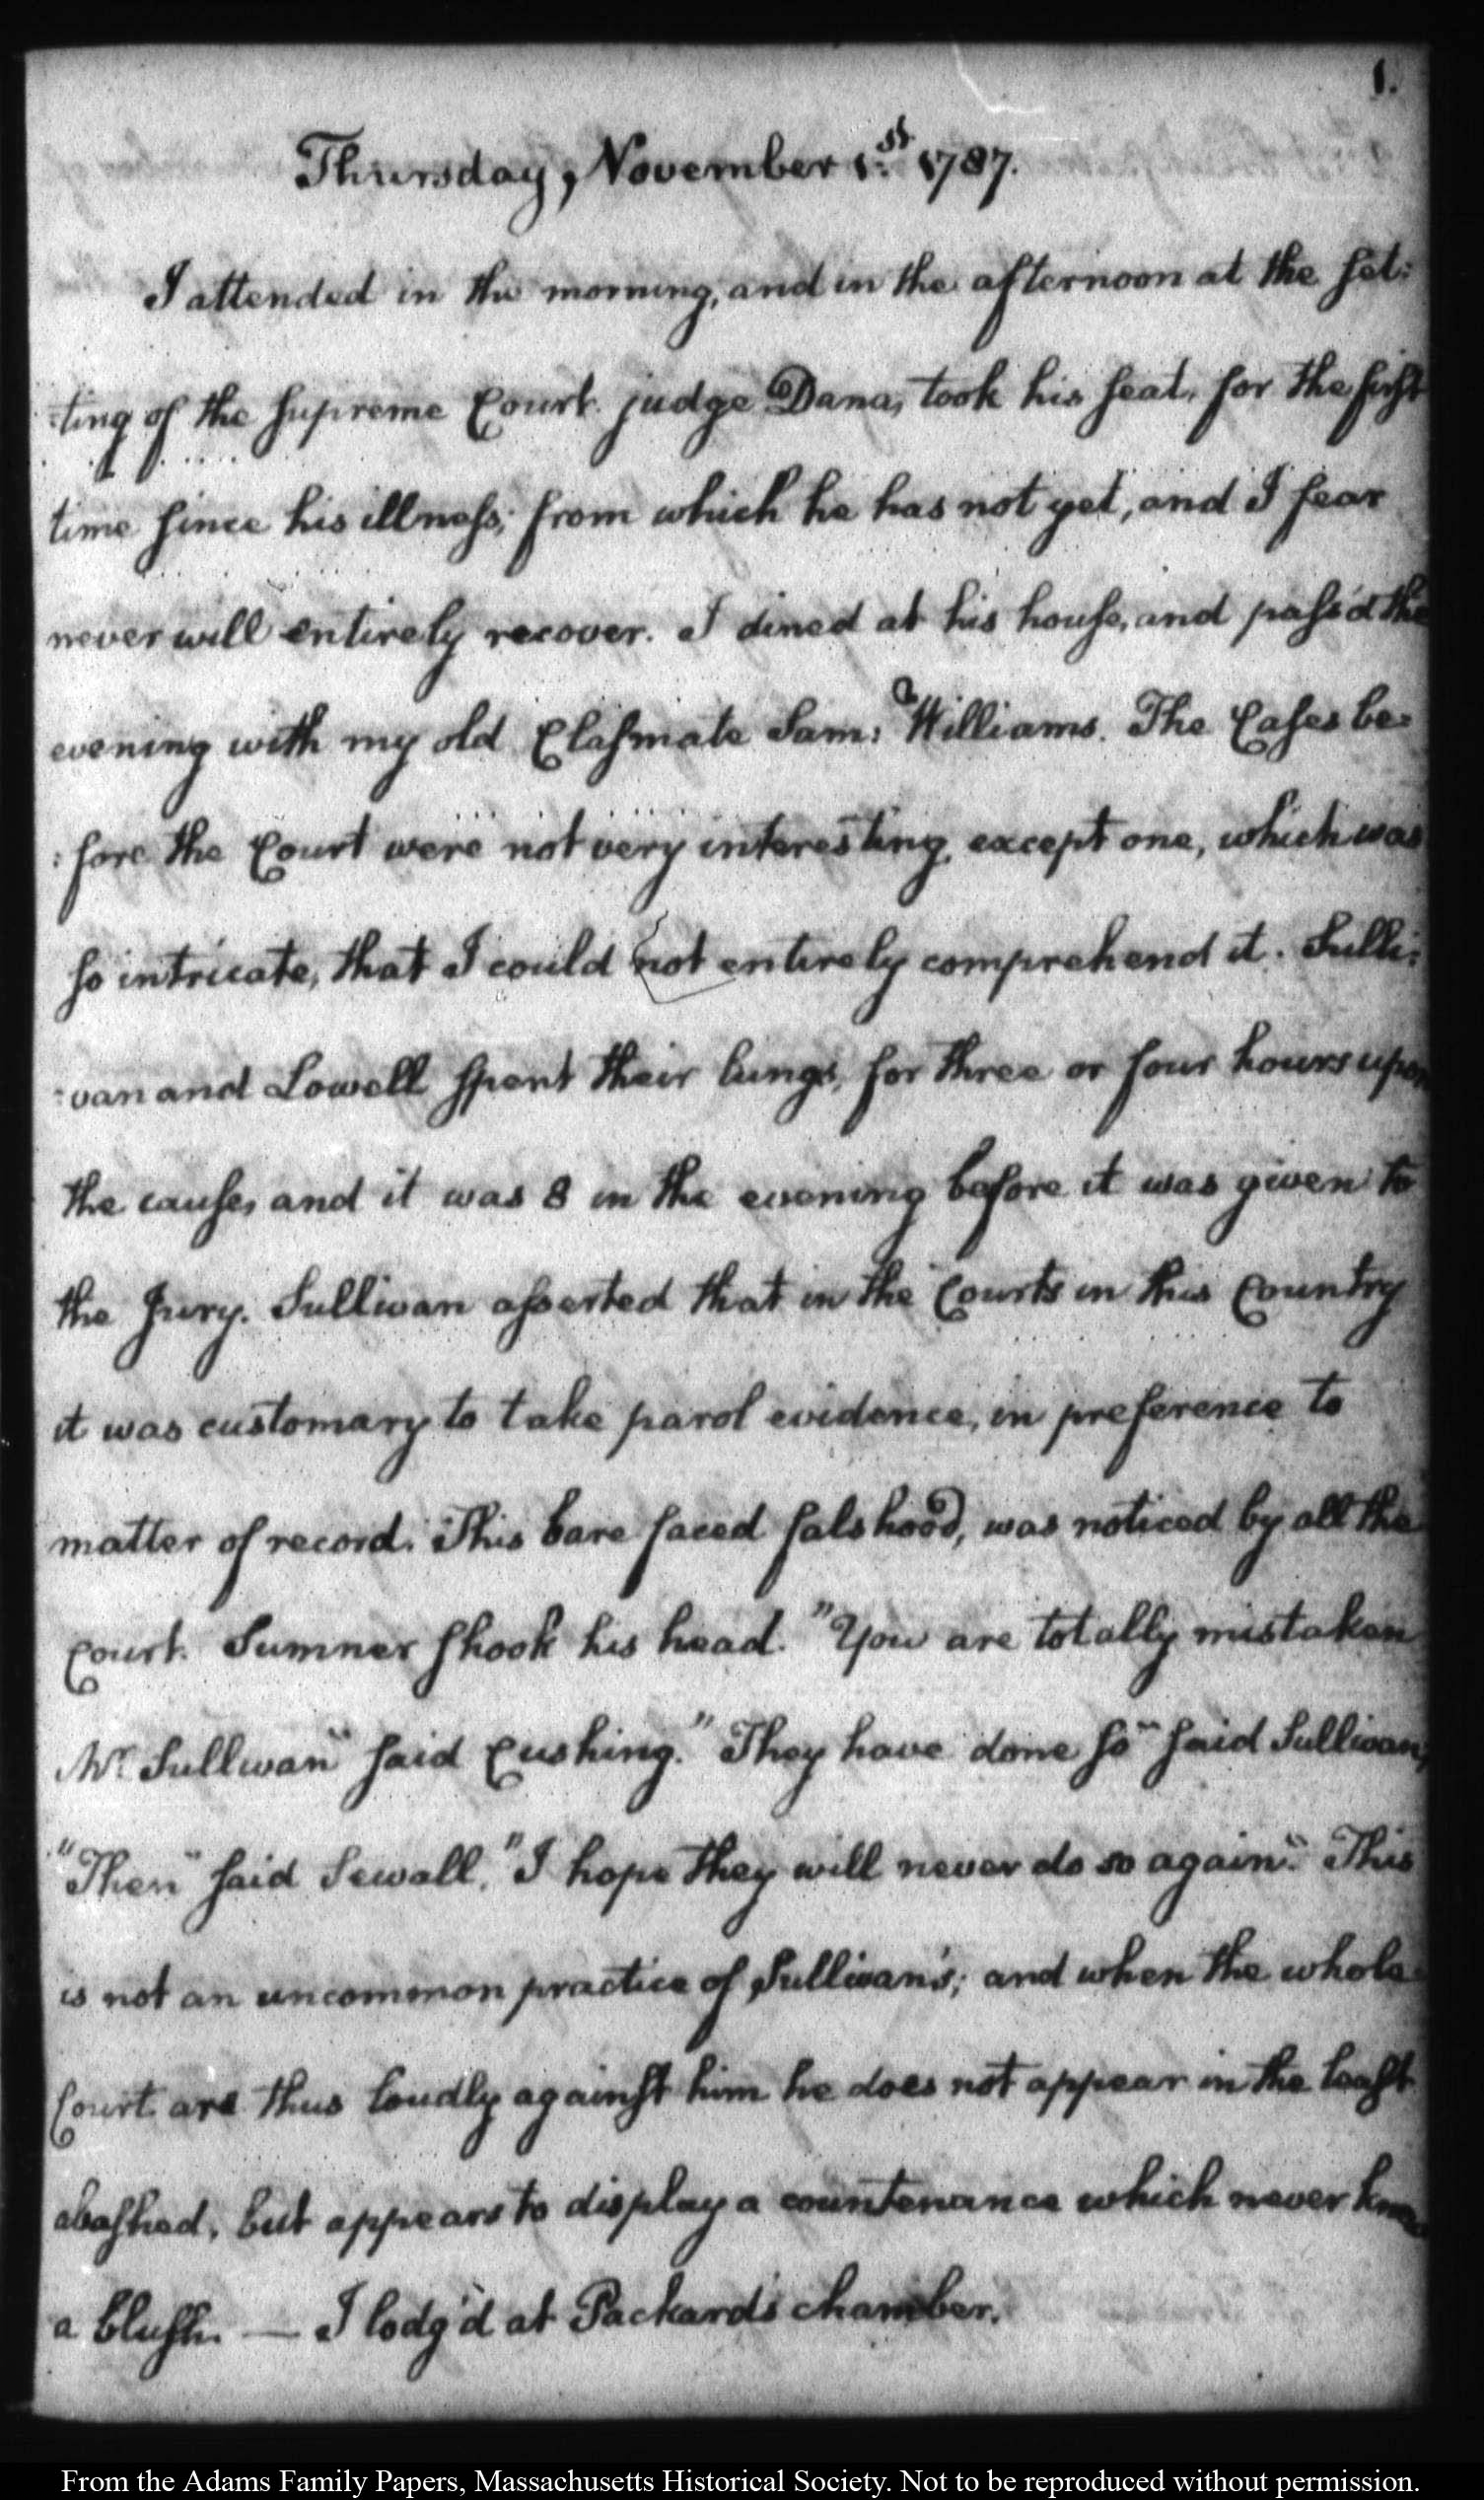 1.
Thursday, November 1.st 1787.
I attended in the morning, and in the afternoon at the set:
:ting of the supreme Court. judge Dana, took his seat, for the first
time since his illness; from which he has not yet, and I fear
never will entirely recover. I dined at his house, and pass'd the
evening with my old Classmate Sam: Williams. The Cases be=
:fore the Court were not very interesting, except one, which was
so intricate, that I could not entirely comprehend it. Sulli:
:van and Lowell spent their lungs, for three or four hours upon
the cause, and it was 8 in the evening before it was given to
the Jury. Sullivan asserted that in the Courts in this Country
it was customary to take parol evidence, in preference to
matter of record. This bare faced falshood, was noticed by all the
Court. Sumner shook his head. "You are totally mistaken
Mr. Sullivan" said Cushing. "They have done so" said Sullivan,
"Then" said Sewall, "I hope they will never do so again." This
is not an uncommon practice of Sullivan's; and when the whole
Court are thus loudly against him he does not appear in the least
abashed, but appears to display a countenance which never knew
a blush. — I lodg'd at Packard's chamber.
From the Adams Family Papers, Massachusetts Historical Society. Not to be reproduced without permission.